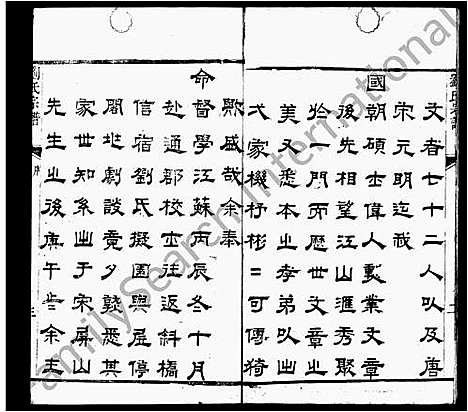 劉氏宗譜
文者七十二人以及唐
宋元明迄我
國朝碩士偉人勳業文章
後先相望江山滙秀聚
於一門而歷世文章之
美又悉本之孝弟以出
大家機杼彬二可傳猗
歟盛哉余奉
命督學江蘇丙辰冬十月
赴通郡校士往返斜橋
信宿劉氏擬園與居停
劇談竟夕悉其
家世知系出于宋屏山
先生之後庚午歲余主
劉氏宗譜
三
FamilySearch International